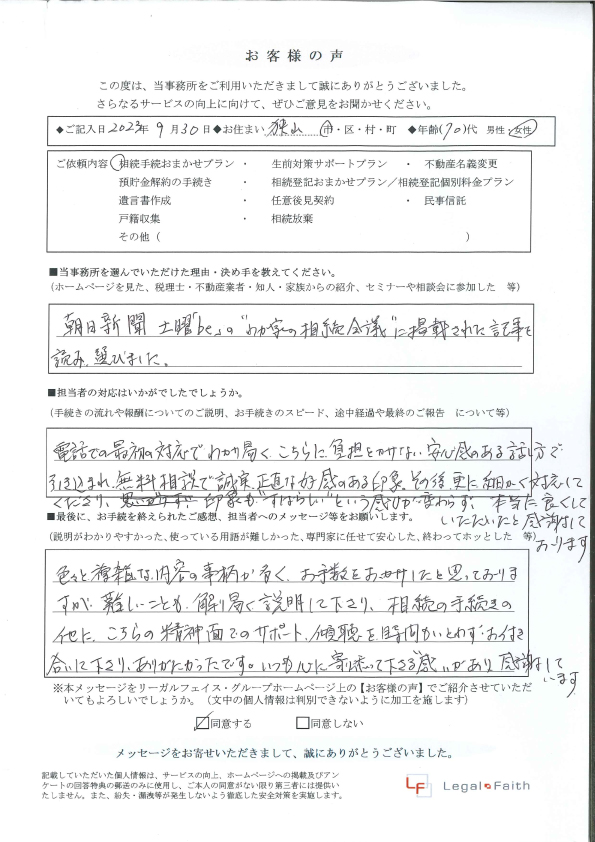 お客様の声
この度は、当事務所をご利用いただきまして誠にありがとうございました。
さらなるサービスの向上に向けて、ぜひご意見をお聞かせください。
◆ご記入日 2023年 9月30日◆お住まい 狭山 市・区・村・町 ◆年齢(70)代 男性・女性
ご依頼内容 相続手続おまかせプラン ・ 生前対策サポートプラン ・ 不動産名義変更
預貯金解約の手続き ・ 相続登記おまかせプラン／相続登記個別料金プラン
遺言書作成 ・ 任意後見契約 ・ 民事信託
戸籍収集 ・ 相続放棄
その他（ ）
■当事務所を選んでいただけた理由・決め手を教えてください。
（ホームページを見た、税理士・不動産業者・知人・家族からの紹介、セミナーや相談会に参加した 等）
朝日新聞 土曜「be」の“わが家の相続会議”に掲載された記事を
読み、選びました。
■担当者の対応はいかがでしたでしょうか。
（手続きの流れや報酬についてのご説明、お手続きのスピード、途中経過や最終のご報告 について等）
電話での最初の対応でわかり易く、こちらに負担をかけない安心感のある話し方で
引き込まれ、無料相談で誠実、正直な好感のある印象、その後、更に細かく対応して
くださり、印象も“すばらしい”という感じが変わらず、本当に良くして
いただいたと感謝して
おります
■最後に、お手続を終えられたご感想、担当者へのメッセージ等をお願いします。
（説明がわかりやすかった、使っている用語が難しかった、専門家に任せて安心した、終わってホッとした 等）
色々と複雑な内容の事柄が多く、お手数をおかけしたと思っておりま
すが、難しいことも、解り易く説明して下さり、相続の手続きの
他に、こちらの精神面でのサポート、傾聴を時間かいとわず お付き
合いして下さり、ありがたかったです。いつも心に寄り添って下さる感じがあり 感謝して
います
※本メッセージをリーガルフェイス・グループホームページ上の【お客様の声】でご紹介させていただ
いてもよろしいでしょうか。（文中の個人情報は判別できないように加工を施します）
☑同意する □同意しない
メッセージをお寄せいただきまして、誠にありがとうございました。
記載していただいた個人情報は、サービスの向上、ホームページへの掲載及びアン
ケートの回答特典の郵送のみに使用し、ご本人の同意がない限り第三者には提供い
たしません。また、紛失・漏洩等が発生しないよう徹底した安全対策を実施します。
LF Legal Faith